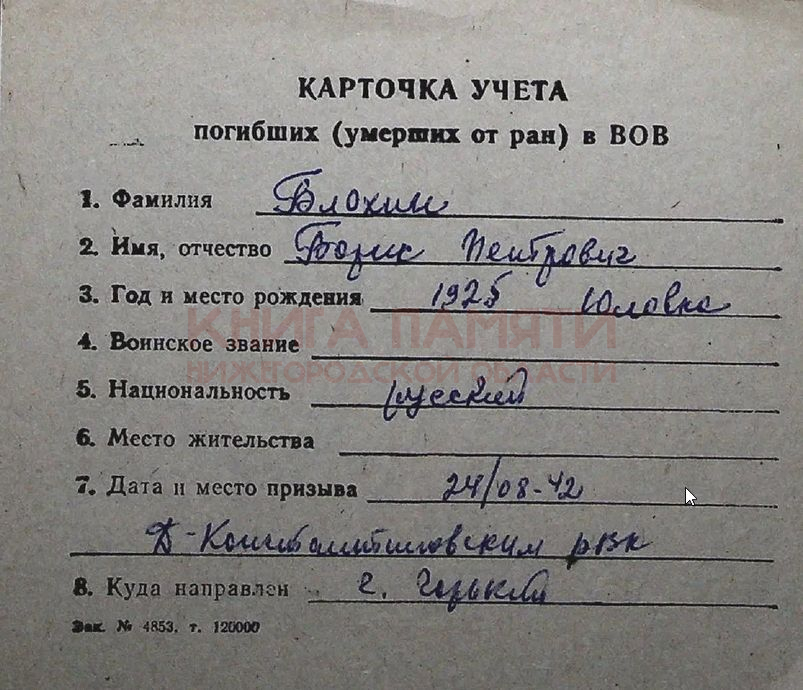 КАРТОЧКА УЧЕТА
погибших (умерших от ран) в ВОВ
1. Фамилия Блохин
2. Имя, отчество Борис Петрович
3. Год и место рождения 1925 Юловка
КНИГА ПАМЯТИ
4. Воинское звание
НИЖЕГОРОДСКОЙ ОБЛАСТИ
5. Национальность русский
6. Место жительства
7. Дата и место призыва 24/08-42
Д-Константиновским рвк
8. Куда направлен г. Горький
Зак. № 4853. т. 120000